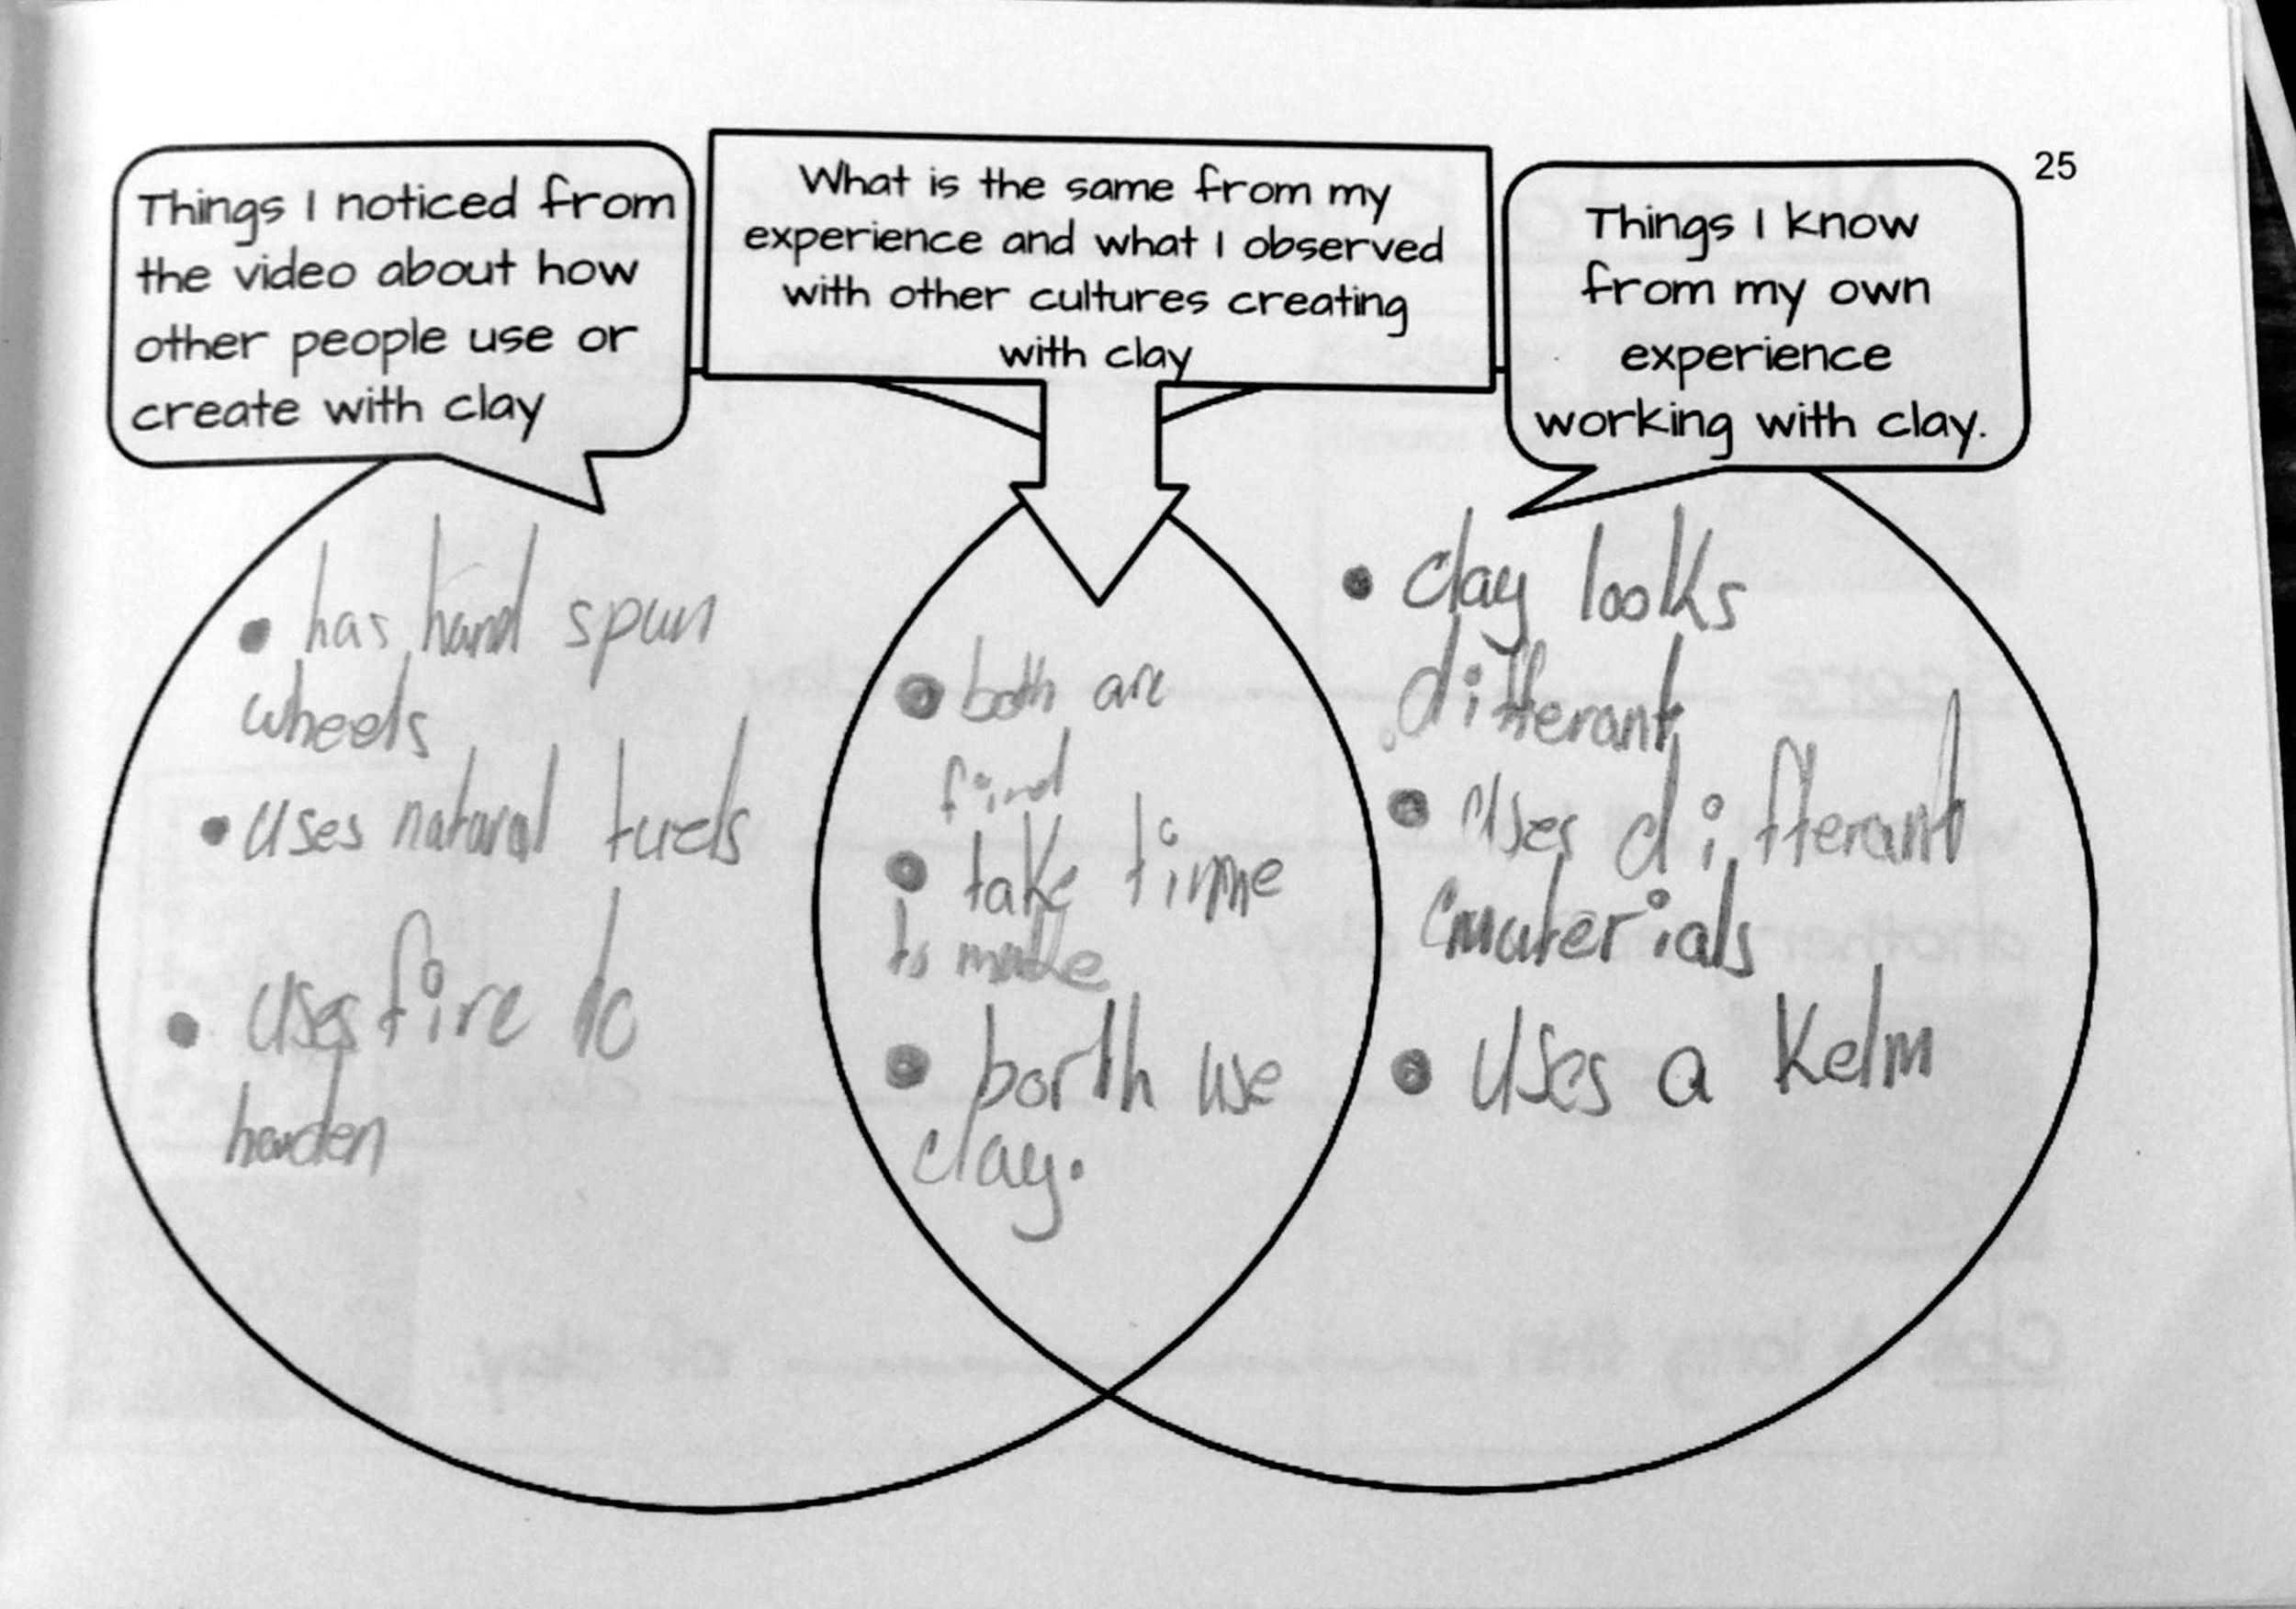 25
Things I noticed from
the video about how
other people use or
create with clay
What is the same from my
experience and what I observed
with other cultures creating
with clay
Things I know
from my own
experience
working with clay.
• has hand spun
wheels
• uses natural
• uses fire to
harden
• both are
fird
• take time
to make
• borth use
clay.
• clay looks
differant
• uses differant
materials
• uses a Kelm